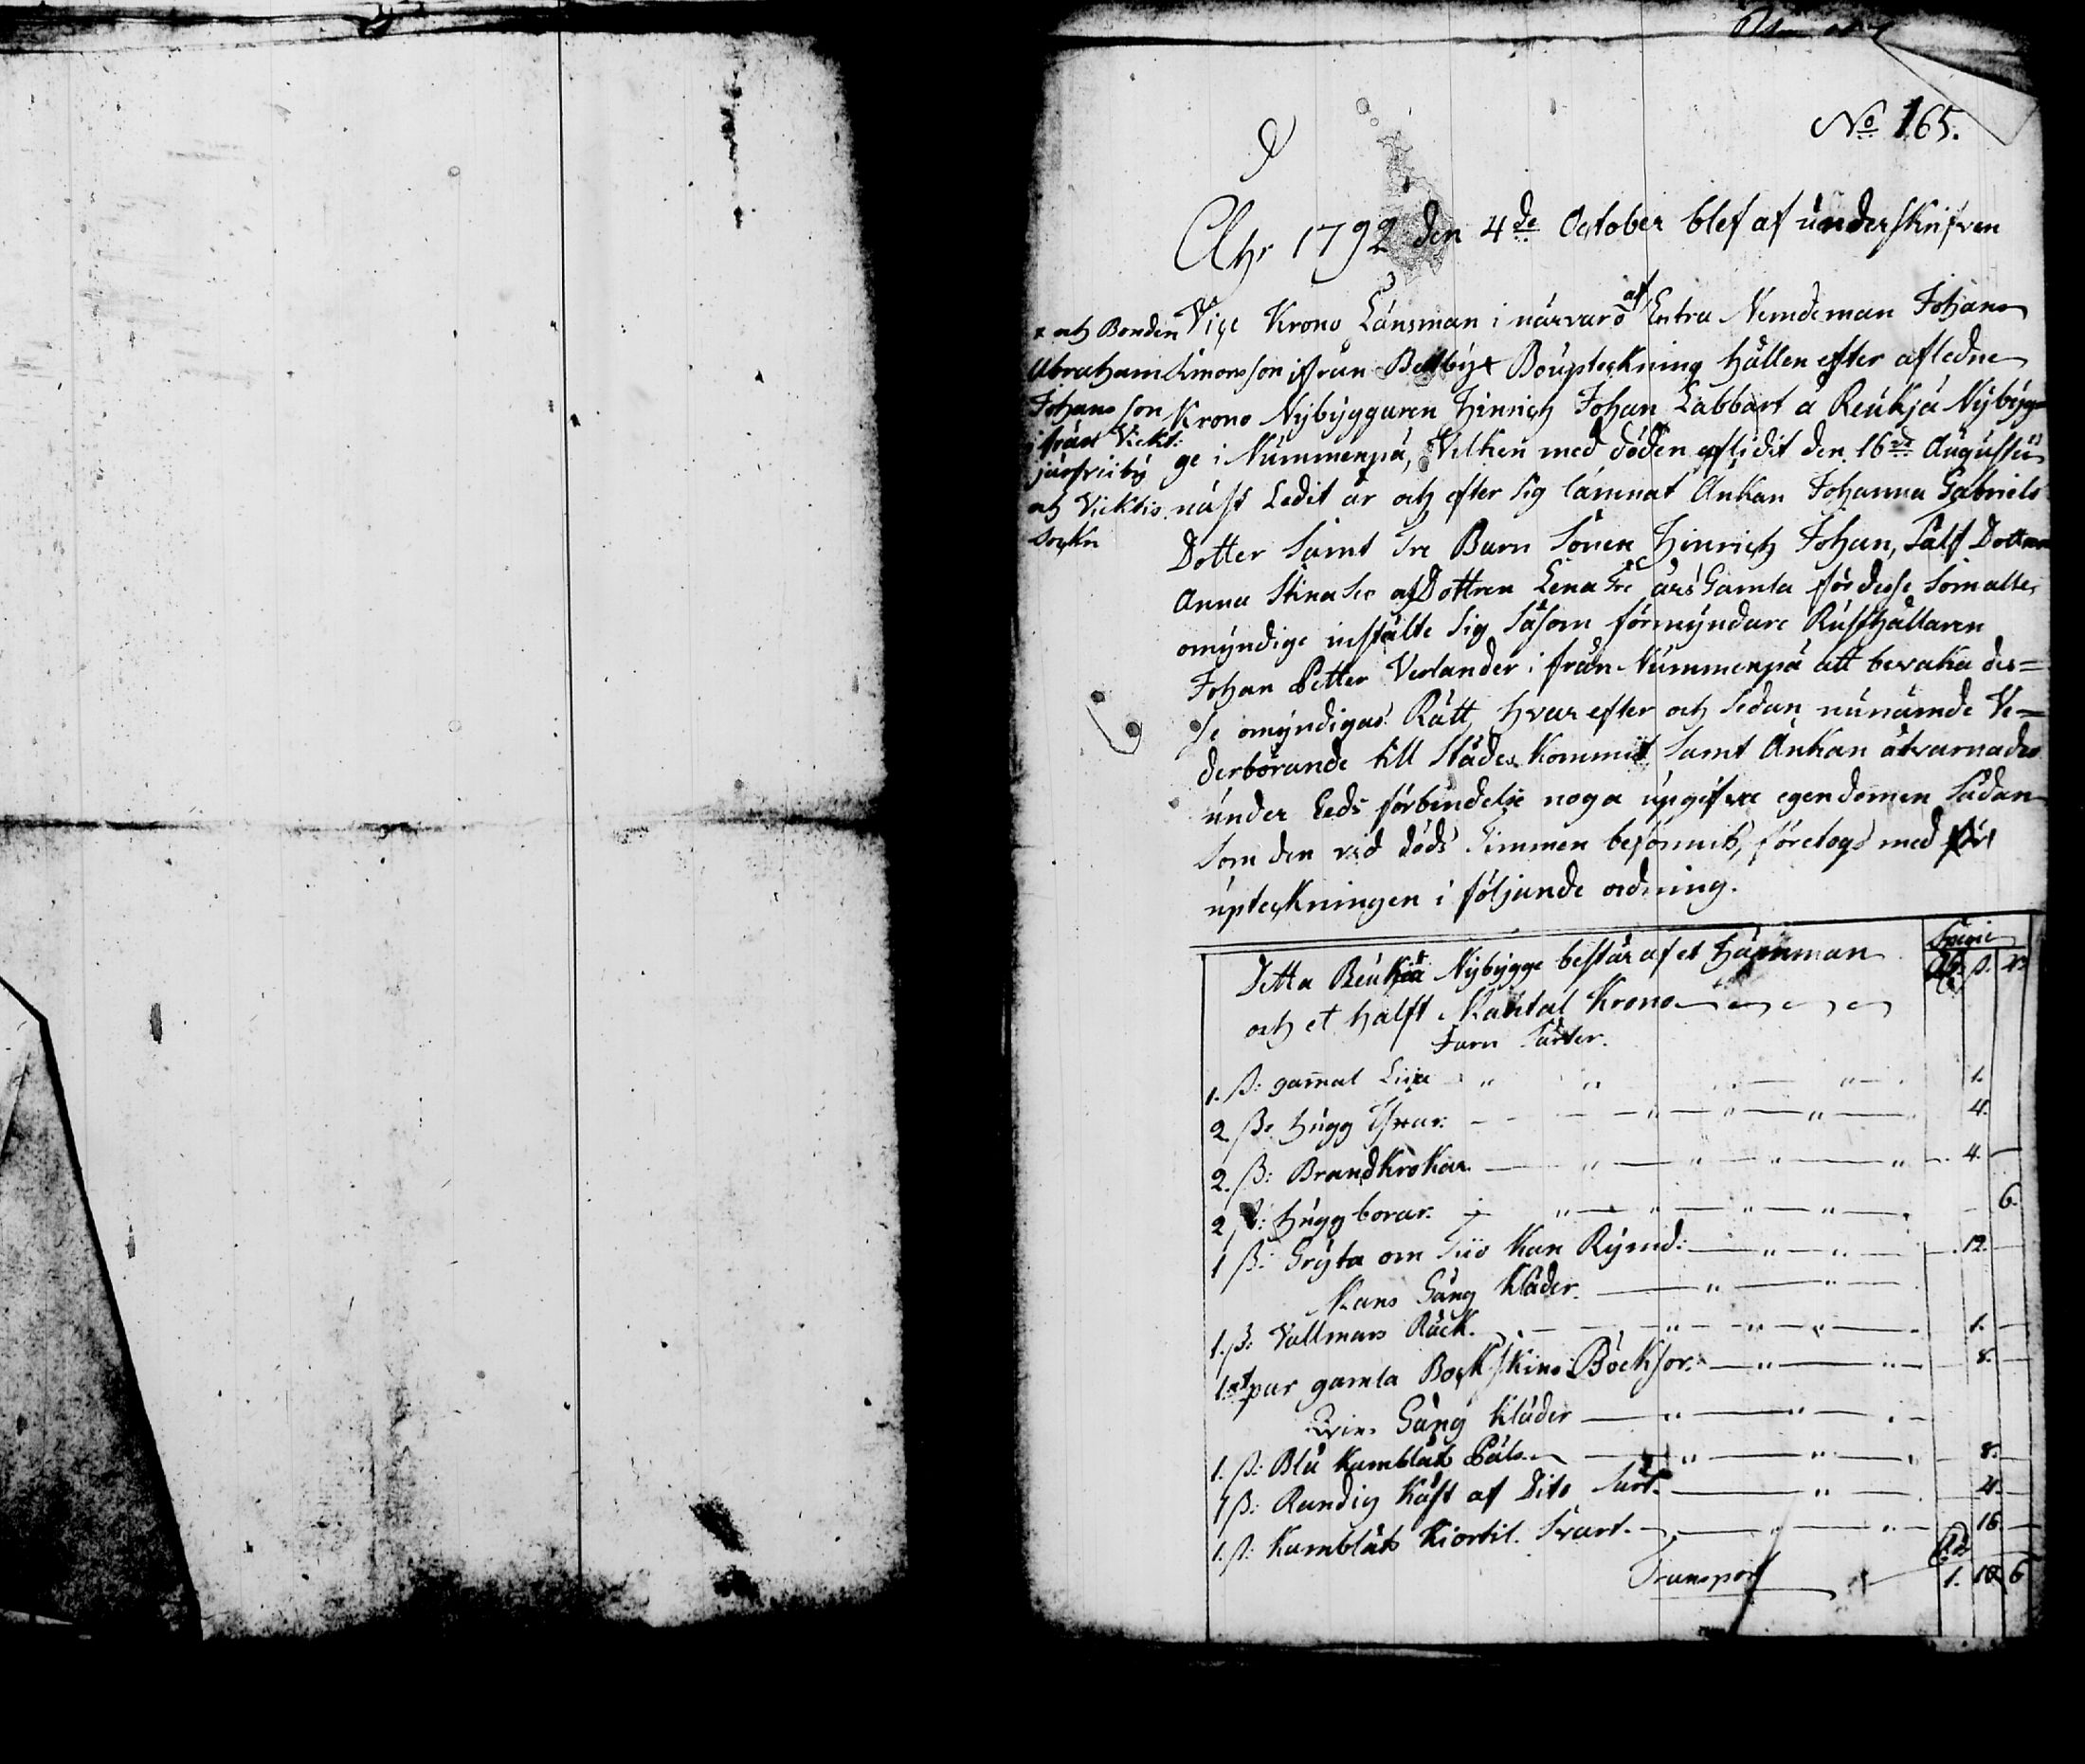 No 165.
Åhr 1792 den 4de October blef af underskrifven
Vice Krono Länsman i närvaro af Extra Nemdeman Johan
Simonsson ifrån Bellby x Bouptekning hållen efter aflednе
Krono Nybyggaren Hinrich Johan Labbart å Reukja Nybyg=
ge i Nummenpä, Vilken med döden aflidit den 16de Augusti
näst Ledit år och efter sig lämnat Änkan Johanna Gabriels
Dotter samt Tre Barn Sonen Hinrich Johan, Dottren
Anna Stina och Dottren Lena Tre års Gamla för desse som alle
omyndige instälte sig såsom förmyndare Rusthållaren
Johan Petter Verlander i från Nummenpä att bevaka des=
se omyndigas Rätt, hvar efter och sedan nunämde Ve=
derbörande till städes kommit samt Änkan åtvarnades
under Eeds förbindelse noga upgifva egendomen sådan
som den vid döds Timmen befonnits, företogs med
upteckningen i följande ordning.
x och Bonden
Abraham
Johansson
ifrån Vickt:
järfvi by
och Vicktis
Sockn
Detta Reukiä Nybygge består af et Hämman
och et halft Mantal Krono
Specie
Rd ß. rs
Jarn Saker.
1. ß: gammal Liia 1.
2. ß: Hugg Yxar: 4.
2. ß: Brand Krokar 4.
2 ß: Hugg borar. 6.
1 ß: Gryta om Tiio Kan Rymd: 12.
Mans Gång Kläder.
1. ß: Vallmars Råck. 1.
1 st par gamla Bock skins Böcksor. 8.
Qvins Gång Kläder
1. ß: Blå Kamblåts Päls 8.
1 ß: Randig Kåft af Dito Sort. 4.
1. ß: Kamblåts Kiortil. Svart. 16.
Transport Rd 1. 10. 6